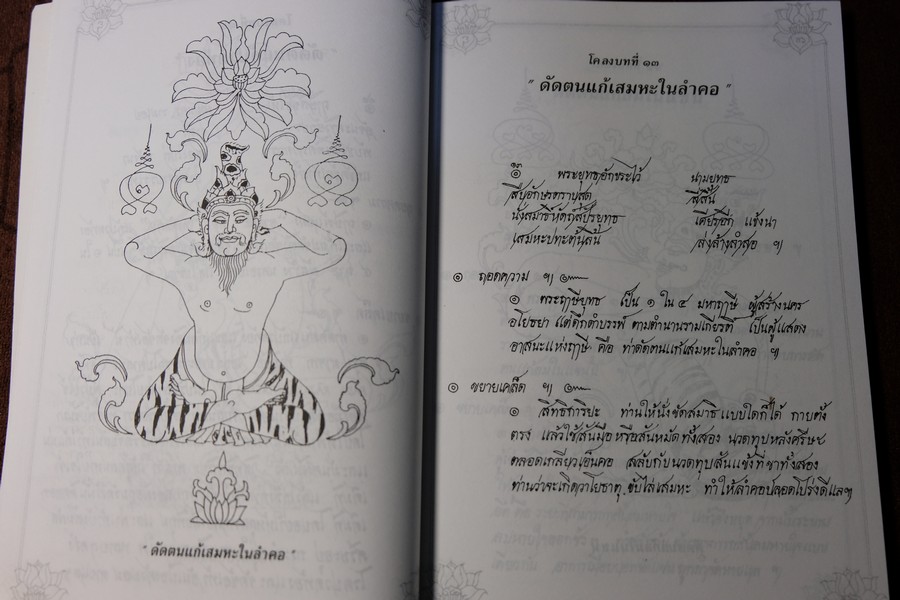 " ดัดตนแก้เสมหะในลำคอ "
โคลงบทที่ ๑๓
" ดัดตนแก้เสมหะในลำคอ "
๏ พระยุทธอักขระไว้ นามยุทธ
สี่สิ้น
นั่งสมาธิหัตถ์สปรยุทธ แข้งนา
เสมหะปทะต้นลิ้น ส่งล้างลำสอ ฯ
๏ ถอดความ ฯ
๏ พระฤาษียุทธ เป็น ๑ ใน ๔ มหาฤาษี ผู้สร้างนคร
อโยธยา แต่ดึกดำบรรพ์ ตามตำนานรามเกียรติ์ เป็นผู้แสดง
อาสนะแห่งฤาษี คือ ท่าดัดตนแก้เสมหะในลำคอ ฯ
๏ ขยายเคล็ด ฯ
๏ สิทธิการิยะ ท่านให้นั่งขัดสมาธิแบบใดก็ได้ กายตั้ง
ตรง แล้วใช้สันมือ หรือสันหมัดทั้งสอง นวดทุบหลังศีรษะ
ตลอดเกลียวเอ็นคอ สลับกับนวดทุบสันแข้งที่ขาทั้งสอง
ท่านว่าจะเกิดวาโยธาตุ ขับไล่เสมหะ ทำให้ลำคอปลอดโปร่งดีแลฯ